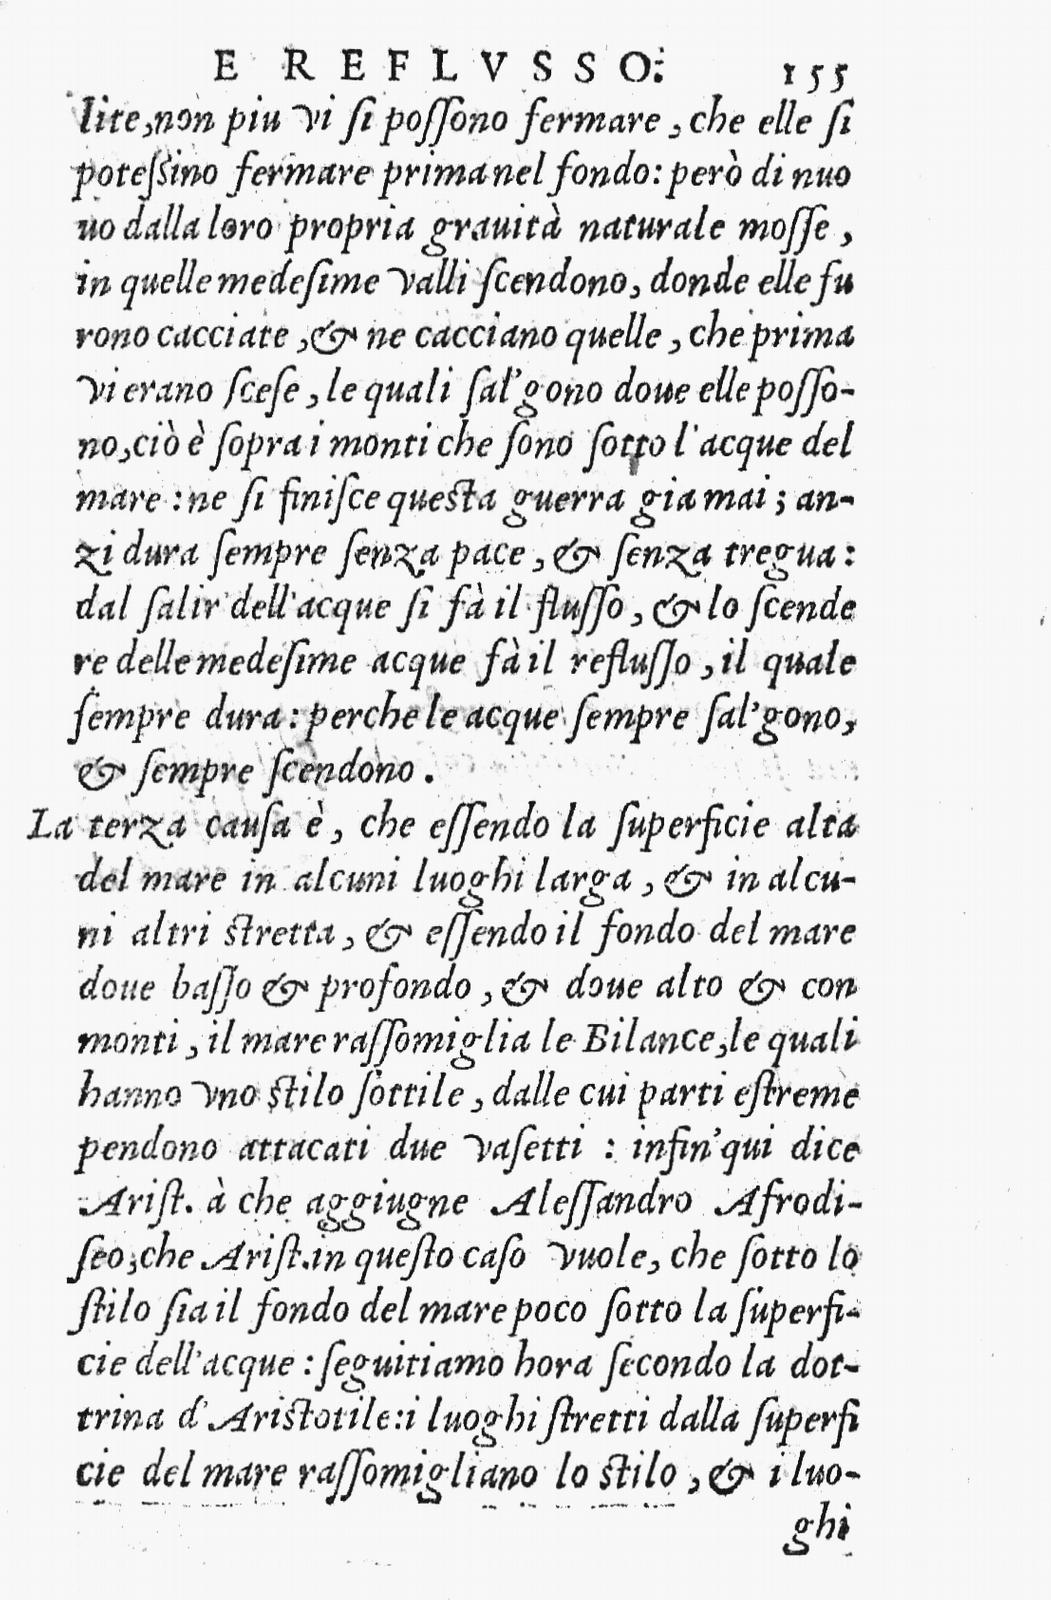 E REFLVSSO. 155
lite, non piu vi si poſſono fermare, che elle ſi
poteſsino fermare prima nel fondo: però di nuo
uo dalla loro propria grauità naturale moſſe,
in quelle medeſime valli ſcendono, donde elle fu
rono cacciate, & ne cacciano quelle, che prima
vi erano ſceſe, le quali ſal'gono doue elle poſſo-
no, ciò è ſopra i monti che ſono ſotto l'acque del
mare: ne ſi finiſce queſta guerra gia mai; an-
zi dura ſempre ſenza pace, & ſenza tregua:
dal ſalir dell'acque ſi fà il fluſſo, & lo ſcende
re delle medeſime acque fà il refluſſo, il quale
ſempre dura: perche le acque ſempre ſal'gono,
& ſempre ſcendono.
La terza cauſa è, che eſſendo la ſuperficie alta
del mare in alcuni luoghi larga, & in alcu-
ni altri ſtretta, & eſſendo il fondo del mare
doue baſſo & profondo, & doue alto & con
monti, il mare raſſomiglia le Bilance, le quali
hanno vno ſtilo ſottile, dalle cui parti eſtreme
pendono attacati due vaſetti: infin'qui dice
Ariſt. à che aggiugne Aleſſandro Afrodi-
ſeo, che Ariſt. in queſto caſo vuole, che ſotto lo
ſtilo ſia il fondo del mare poco ſotto la ſuperfi-
cie dell'acque: ſeguitiamo hora ſecondo la dot-
trina d'Ariſtotile: i luoghi ſtretti dalla ſuperfi
cie del mare raſſomigliano lo ſtilo, & i luo-
ghi